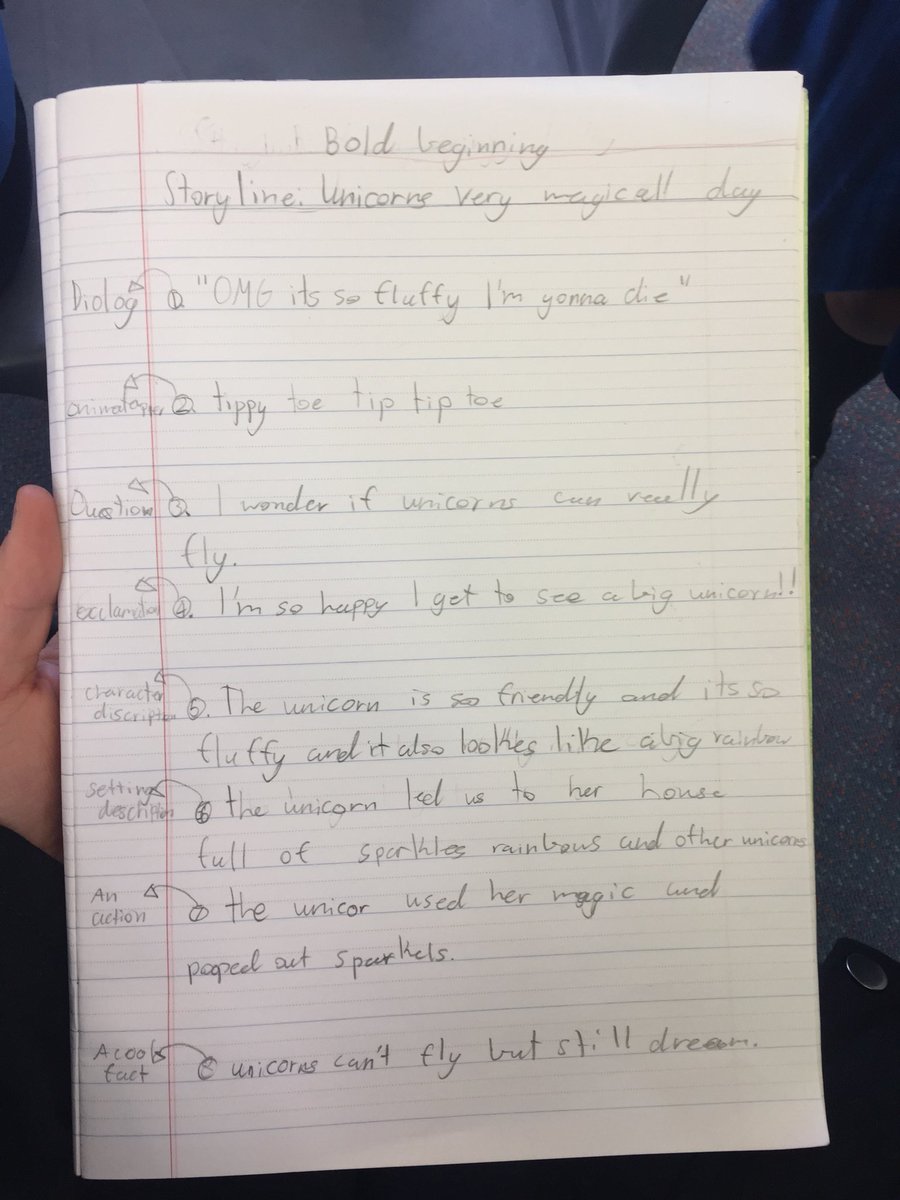 Bold beginning
Storyline: Unicorns very magicall day
Diolog 1. "OMG its so fluffy I'm gonna die"
2. tippy toe tip tip toe
Question 3. I wonder if unicorns can really
fly.
exclamation 4. I'm so happy I get to see a big unicorn!!
character
discription 5. The unicorn is so friendly and its so
fluffy and it also lookes like a big rainbow
setting
description 6 the unicorn led us to her house
full of sparkles rainbows and other unicorns
An
action 7 the unicor used her magic and
pooped out sparkels.
A cool
fact 8 unicorns can't fly but still dream.